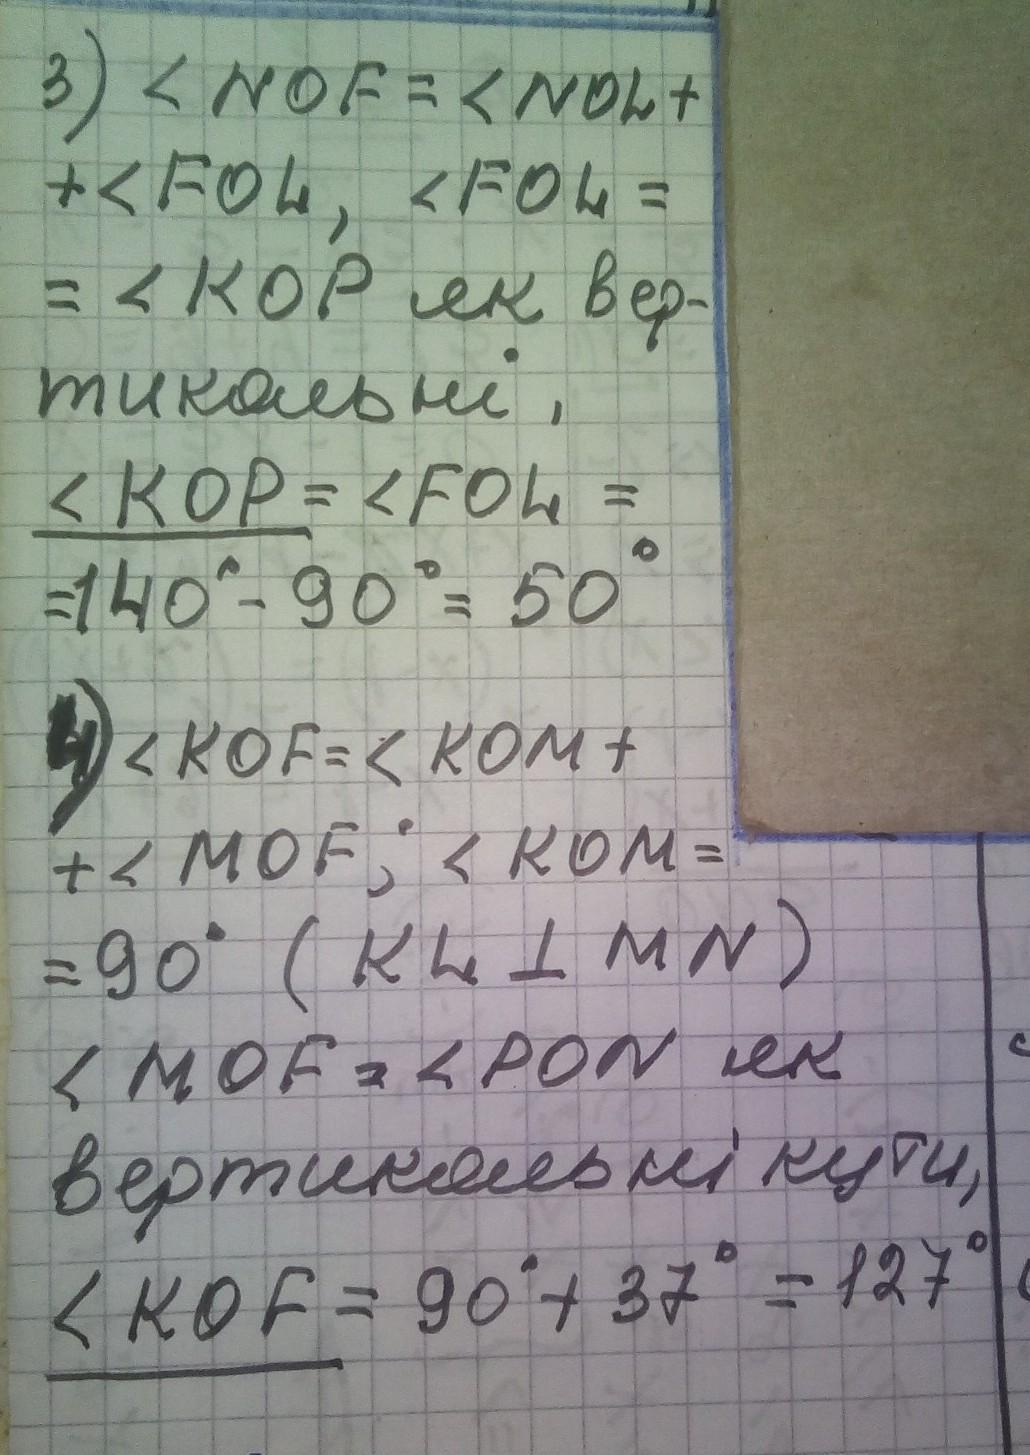 3) < NOF = < NOL +
+ < FOL, < FOL =
= < KOP як вер-
тикальні,
< KOP = < FOL =
= 140° - 90° = 50°
4) < KOF = < KOM +
+ < MOF; < KOM =
= 90° ( KL ⊥ MN )
< MOF = < PON як
вертикальні кути,
< KOF = 90° + 37° = 127°